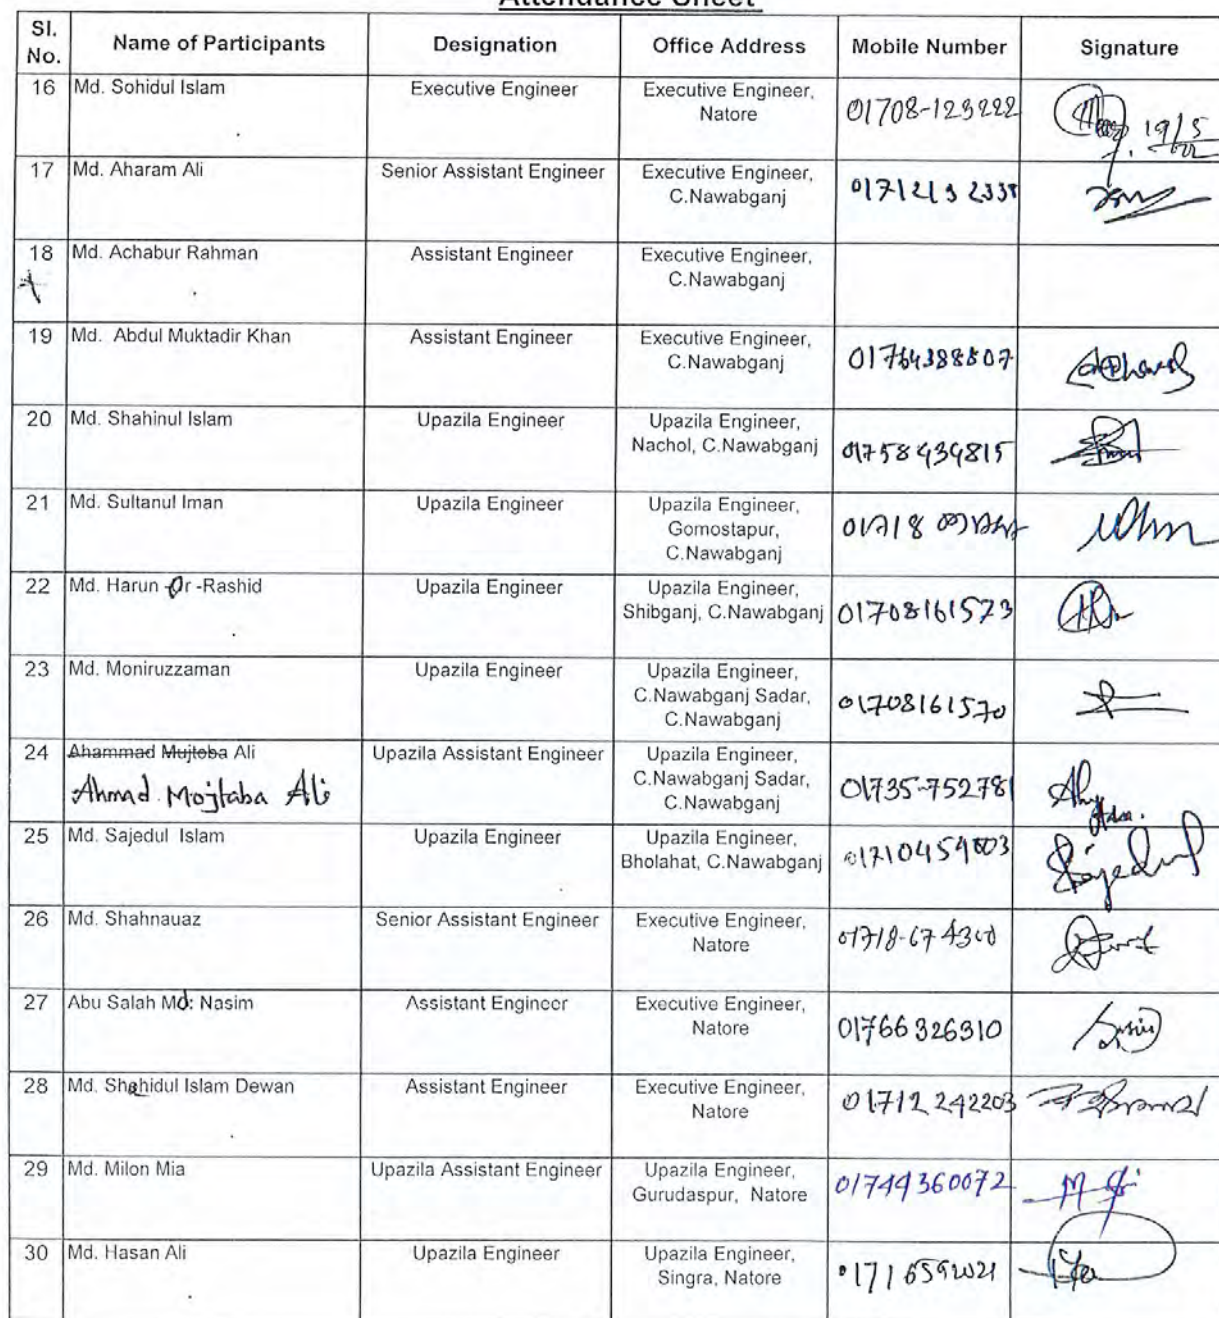 Attendance Sheet
Sl. No. Name of Participants Designation Office Address Mobile Number Signature
16 Md. Sohidul Islam Executive Engineer Executive Engineer, Natore 01708-123222 19/5
17 Md. Aharam Ali Senior Assistant Engineer Executive Engineer, C.Nawabganj
18 Md. Achabur Rahman Assistant Engineer Executive Engineer, C.Nawabganj
19 Md. Abdul Muktadir Khan Assistant Engineer Executive Engineer, C.Nawabganj 01764388807
20 Md. Shahinul Islam Upazila Engineer Upazila Engineer, Nachol, C.Nawabganj 01758434815
21 Md. Sultanul Iman Upazila Engineer Upazila Engineer, Gomostapur, C.Nawabganj
22 Md. Harun -Or -Rashid Upazila Engineer Upazila Engineer, Shibganj, C.Nawabganj 01708161573
23 Md. Moniruzzaman Upazila Engineer Upazila Engineer, C.Nawabganj Sadar, C.Nawabganj 01708161570
24 Ahammad Mujtoba Ali Upazila Assistant Engineer Upazila Engineer, C.Nawabganj Sadar, C.Nawabganj 01735-752781
Ahmad Mojtaba Ali
25 Md. Sajedul Islam Upazila Engineer Upazila Engineer, Bholahat, C.Nawabganj Sajedul
26 Md. Shahnauaz Senior Assistant Engineer Executive Engineer, Natore
27 Abu Salah Md. Nasim Assistant Engineer Executive Engineer, Natore 01766326310
28 Md. Shahidul Islam Dewan Assistant Engineer Executive Engineer, Natore 01712242203
29 Md. Milon Mia Upazila Assistant Engineer Upazila Engineer, Gurudaspur, Natore 01744360072
30 Md. Hasan Ali Upazila Engineer Upazila Engineer, Singra, Natore